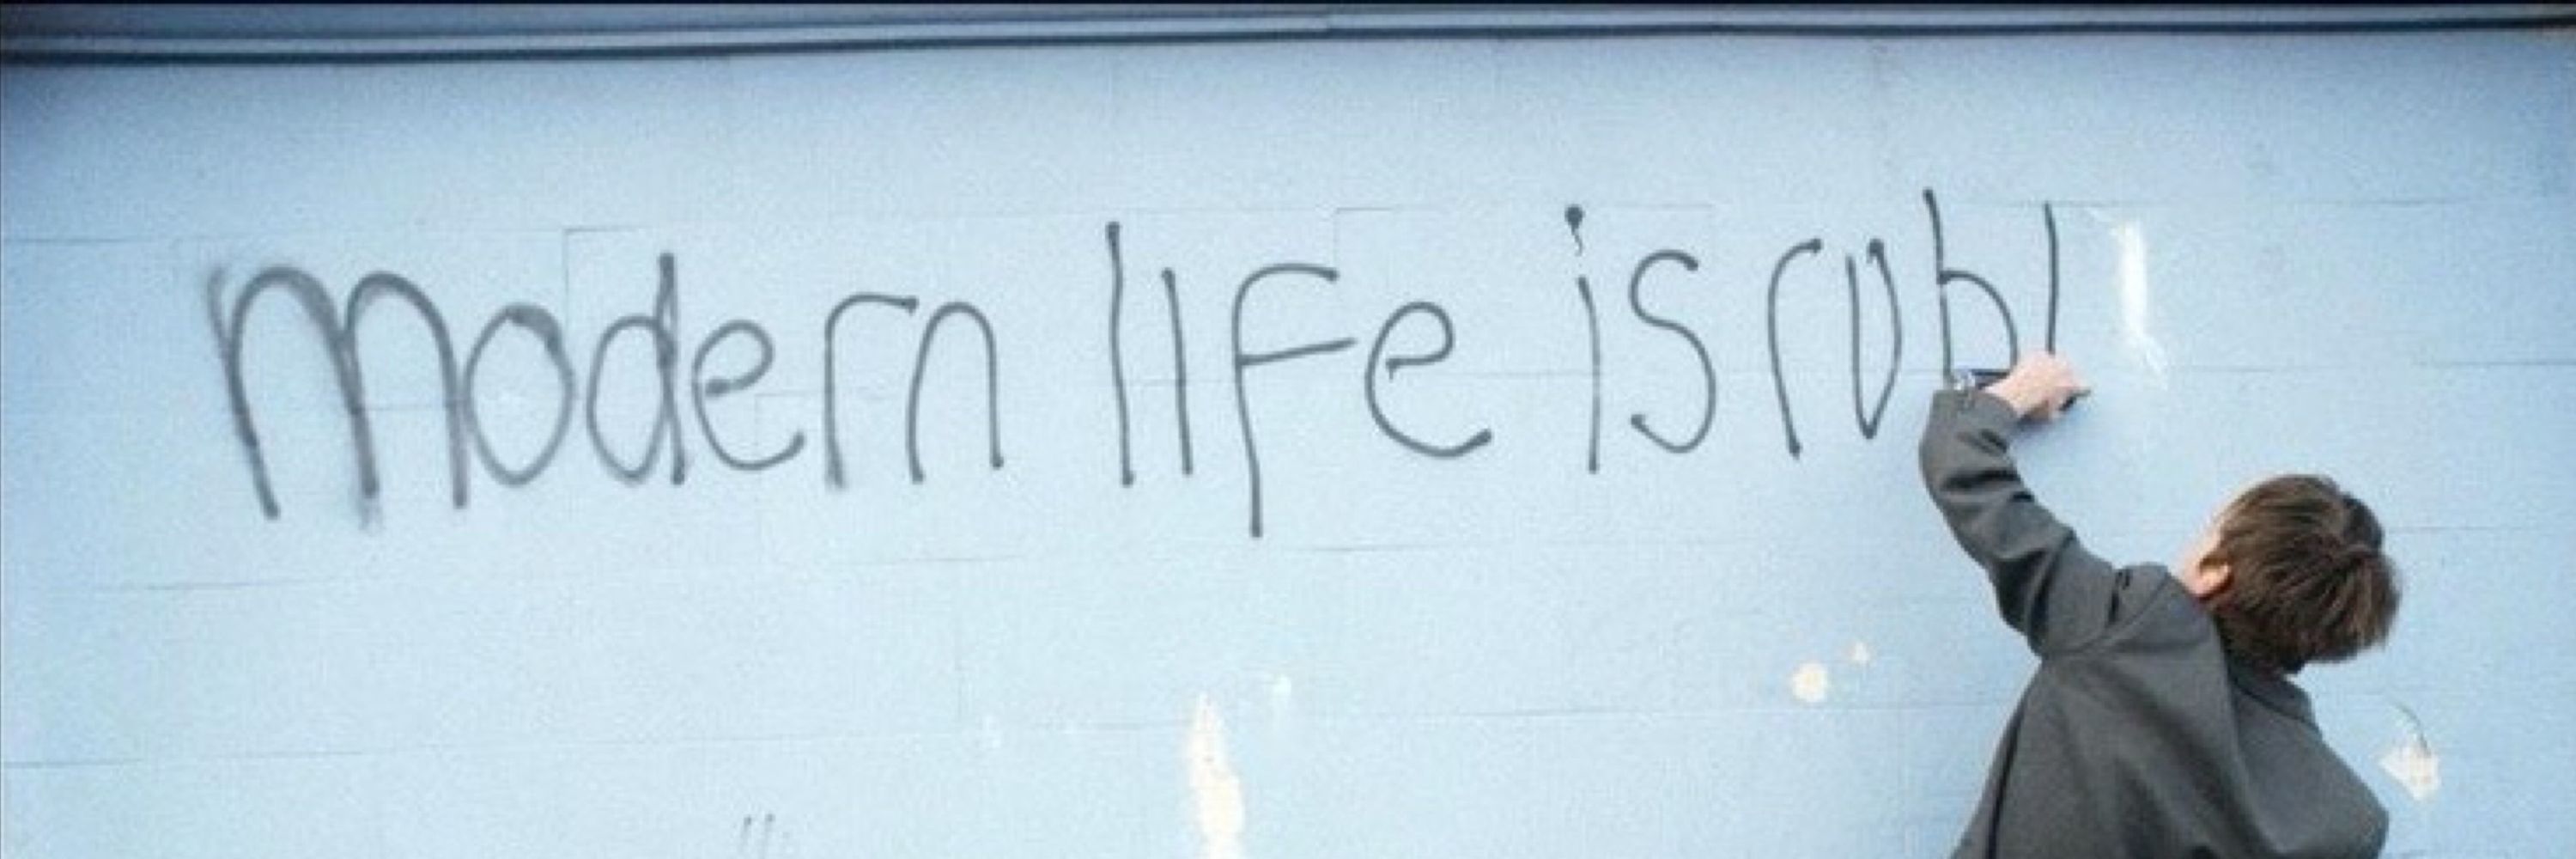 modern life is rubl